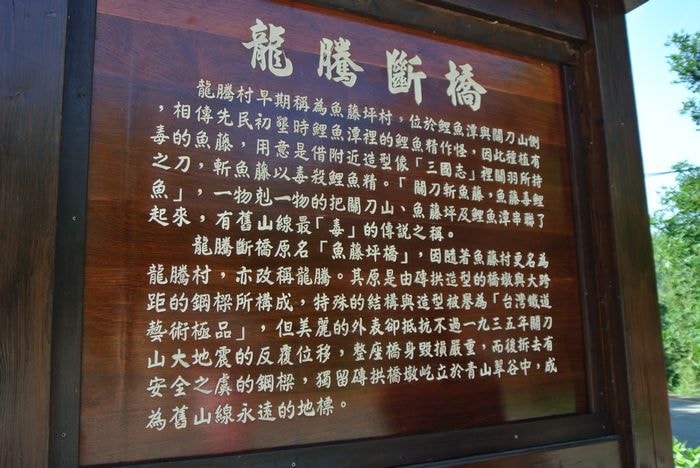 龍騰斷橋
龍騰村早期稱為魚藤坪村，位於鯉魚潭與關刀山側
，相傳先民初墾時鯉魚潭裡的鯉魚精作怪，因此種植有
毒的魚藤，用意是借附近造型像「三國志」裡關羽所持
之刀，斬魚藤以毒殺鯉魚精。「關刀斬魚藤，魚藤毒鯉
魚」，一物剋一物的把關刀山、魚藤坪及鯉魚潭串聯了
起來，有舊山線最「毒」的傳說之稱。
龍騰斷橋原名「魚藤坪橋」，因隨著魚藤村更名為
龍騰村，亦改稱龍騰。其原是由磚拱造型的橋墩與大跨
距的鋼樑所構成，特殊的結構與造型被譽為「台灣鐵道
藝術極品」，但美麗的外表卻抵抗不過一九三五年關刀
山大地震的反覆位移，整座橋身毀損嚴重，而後拆去有
安全之虞的鋼樑，獨留磚拱橋墩屹立於青山翠谷中，成
為舊山線永遠的地標。